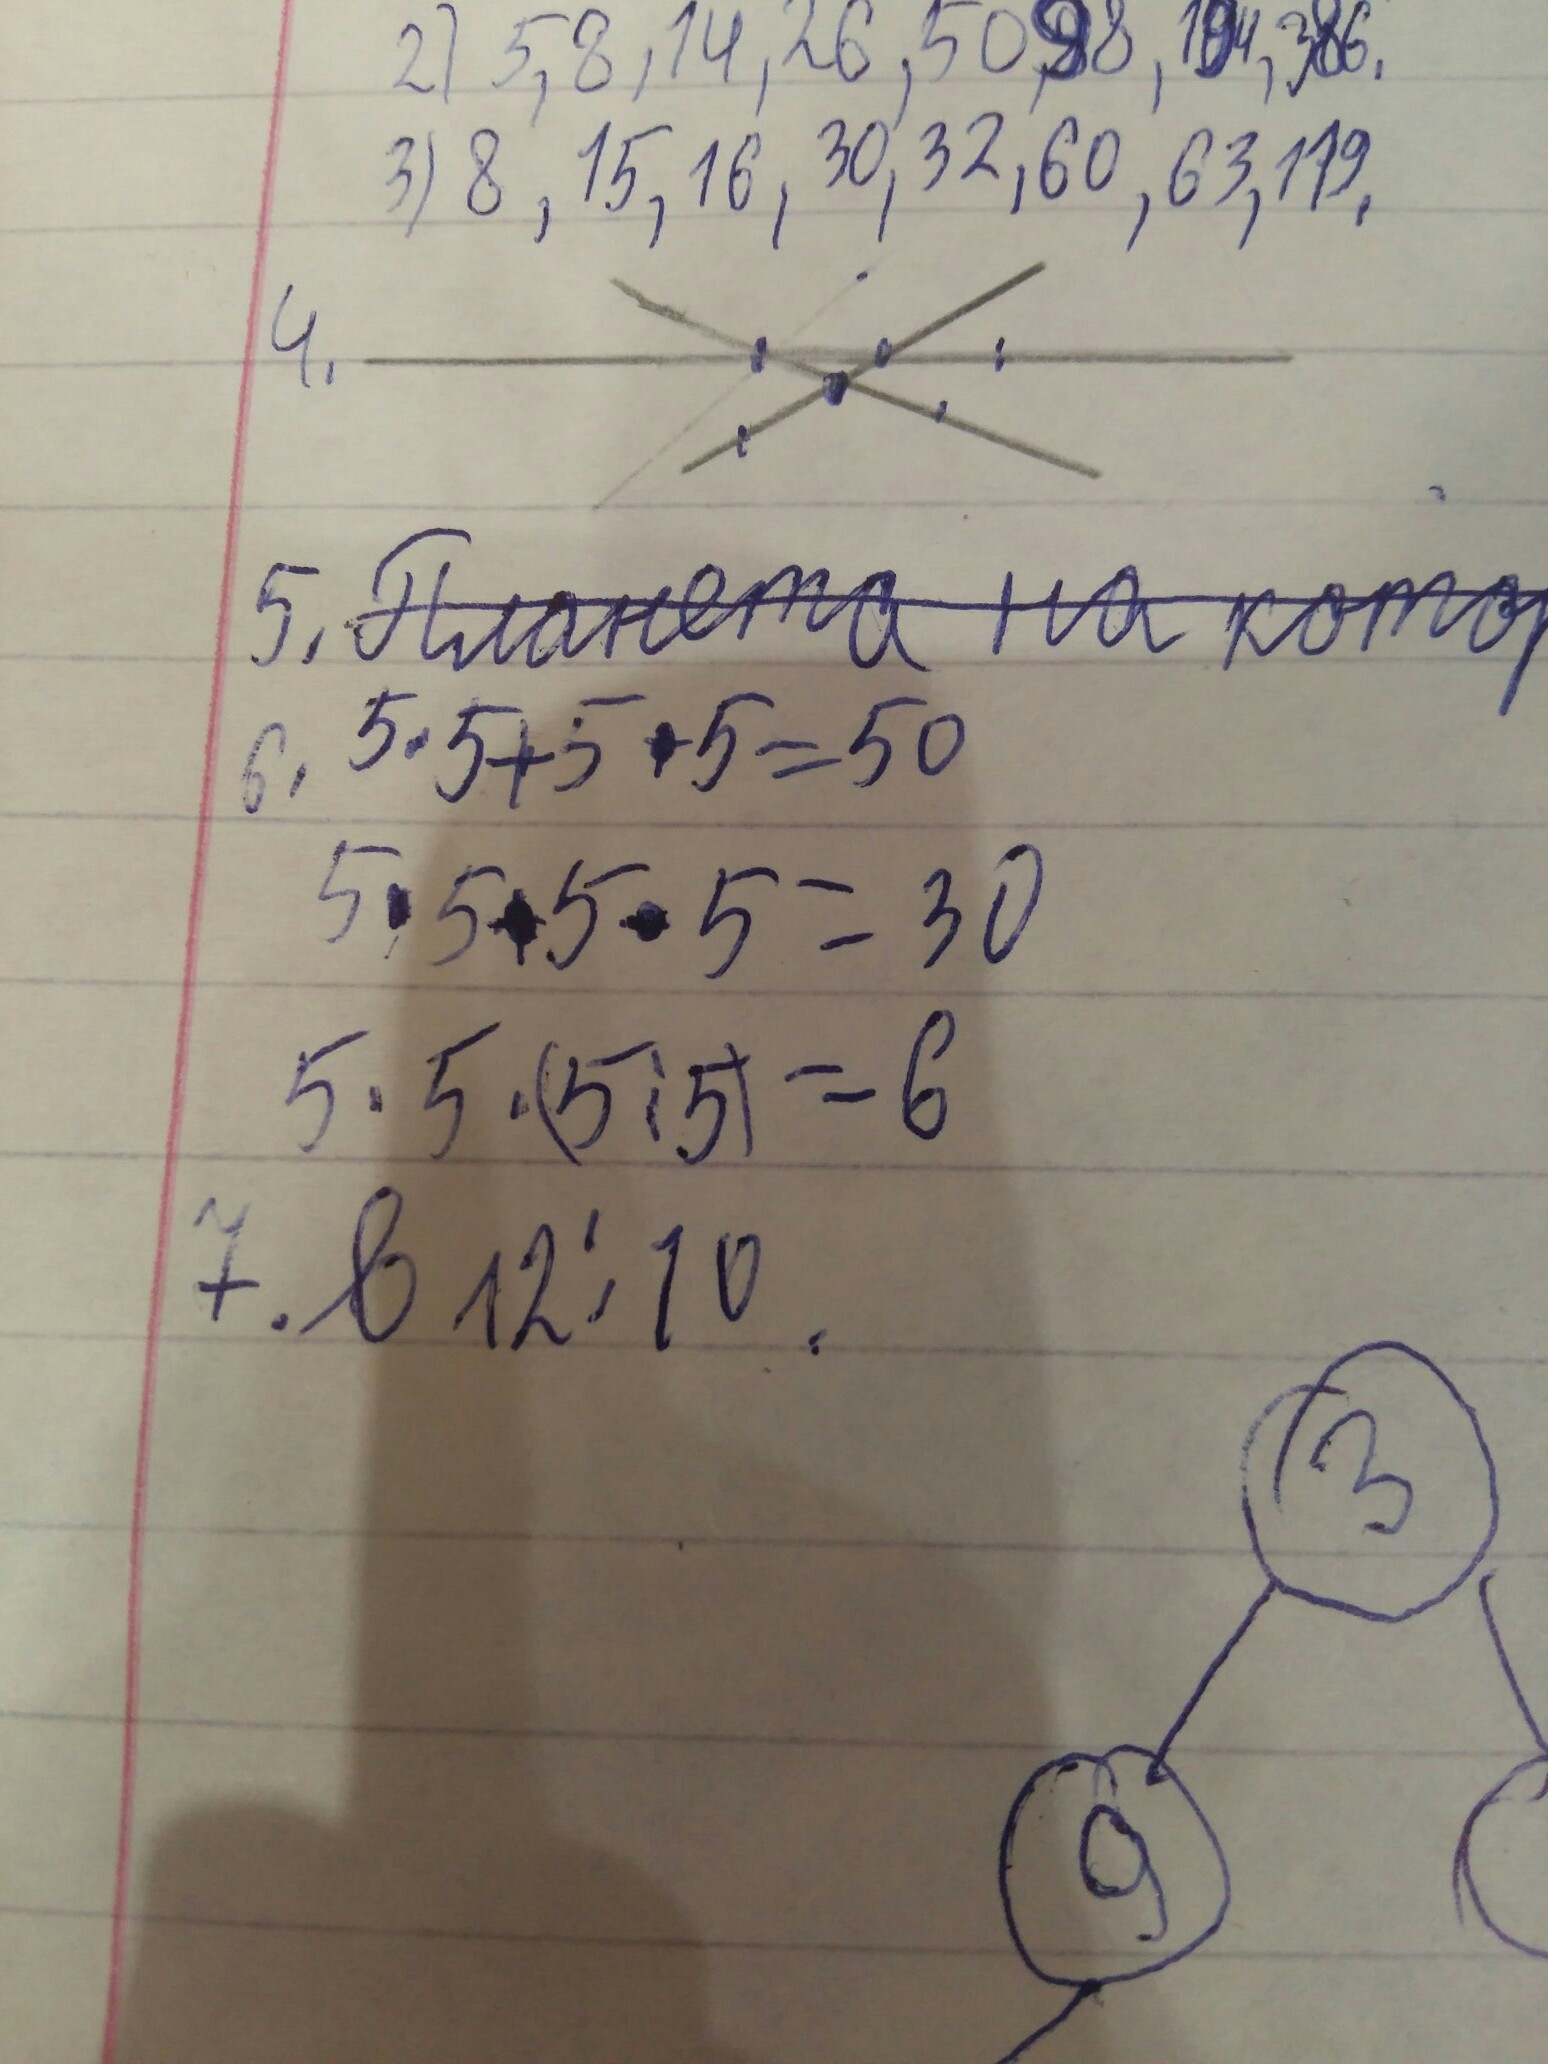 2) 5, 8, 14, 26, 50, 98, 194, 386.
3) 8, 15, 16, 30, 32, 60, 63, 119.
4.
5. Планета на котор
6. 5·5+5·5=50
5·5·5·5=30
5·5·(5:5)=6
7. в 12:10.
3
9